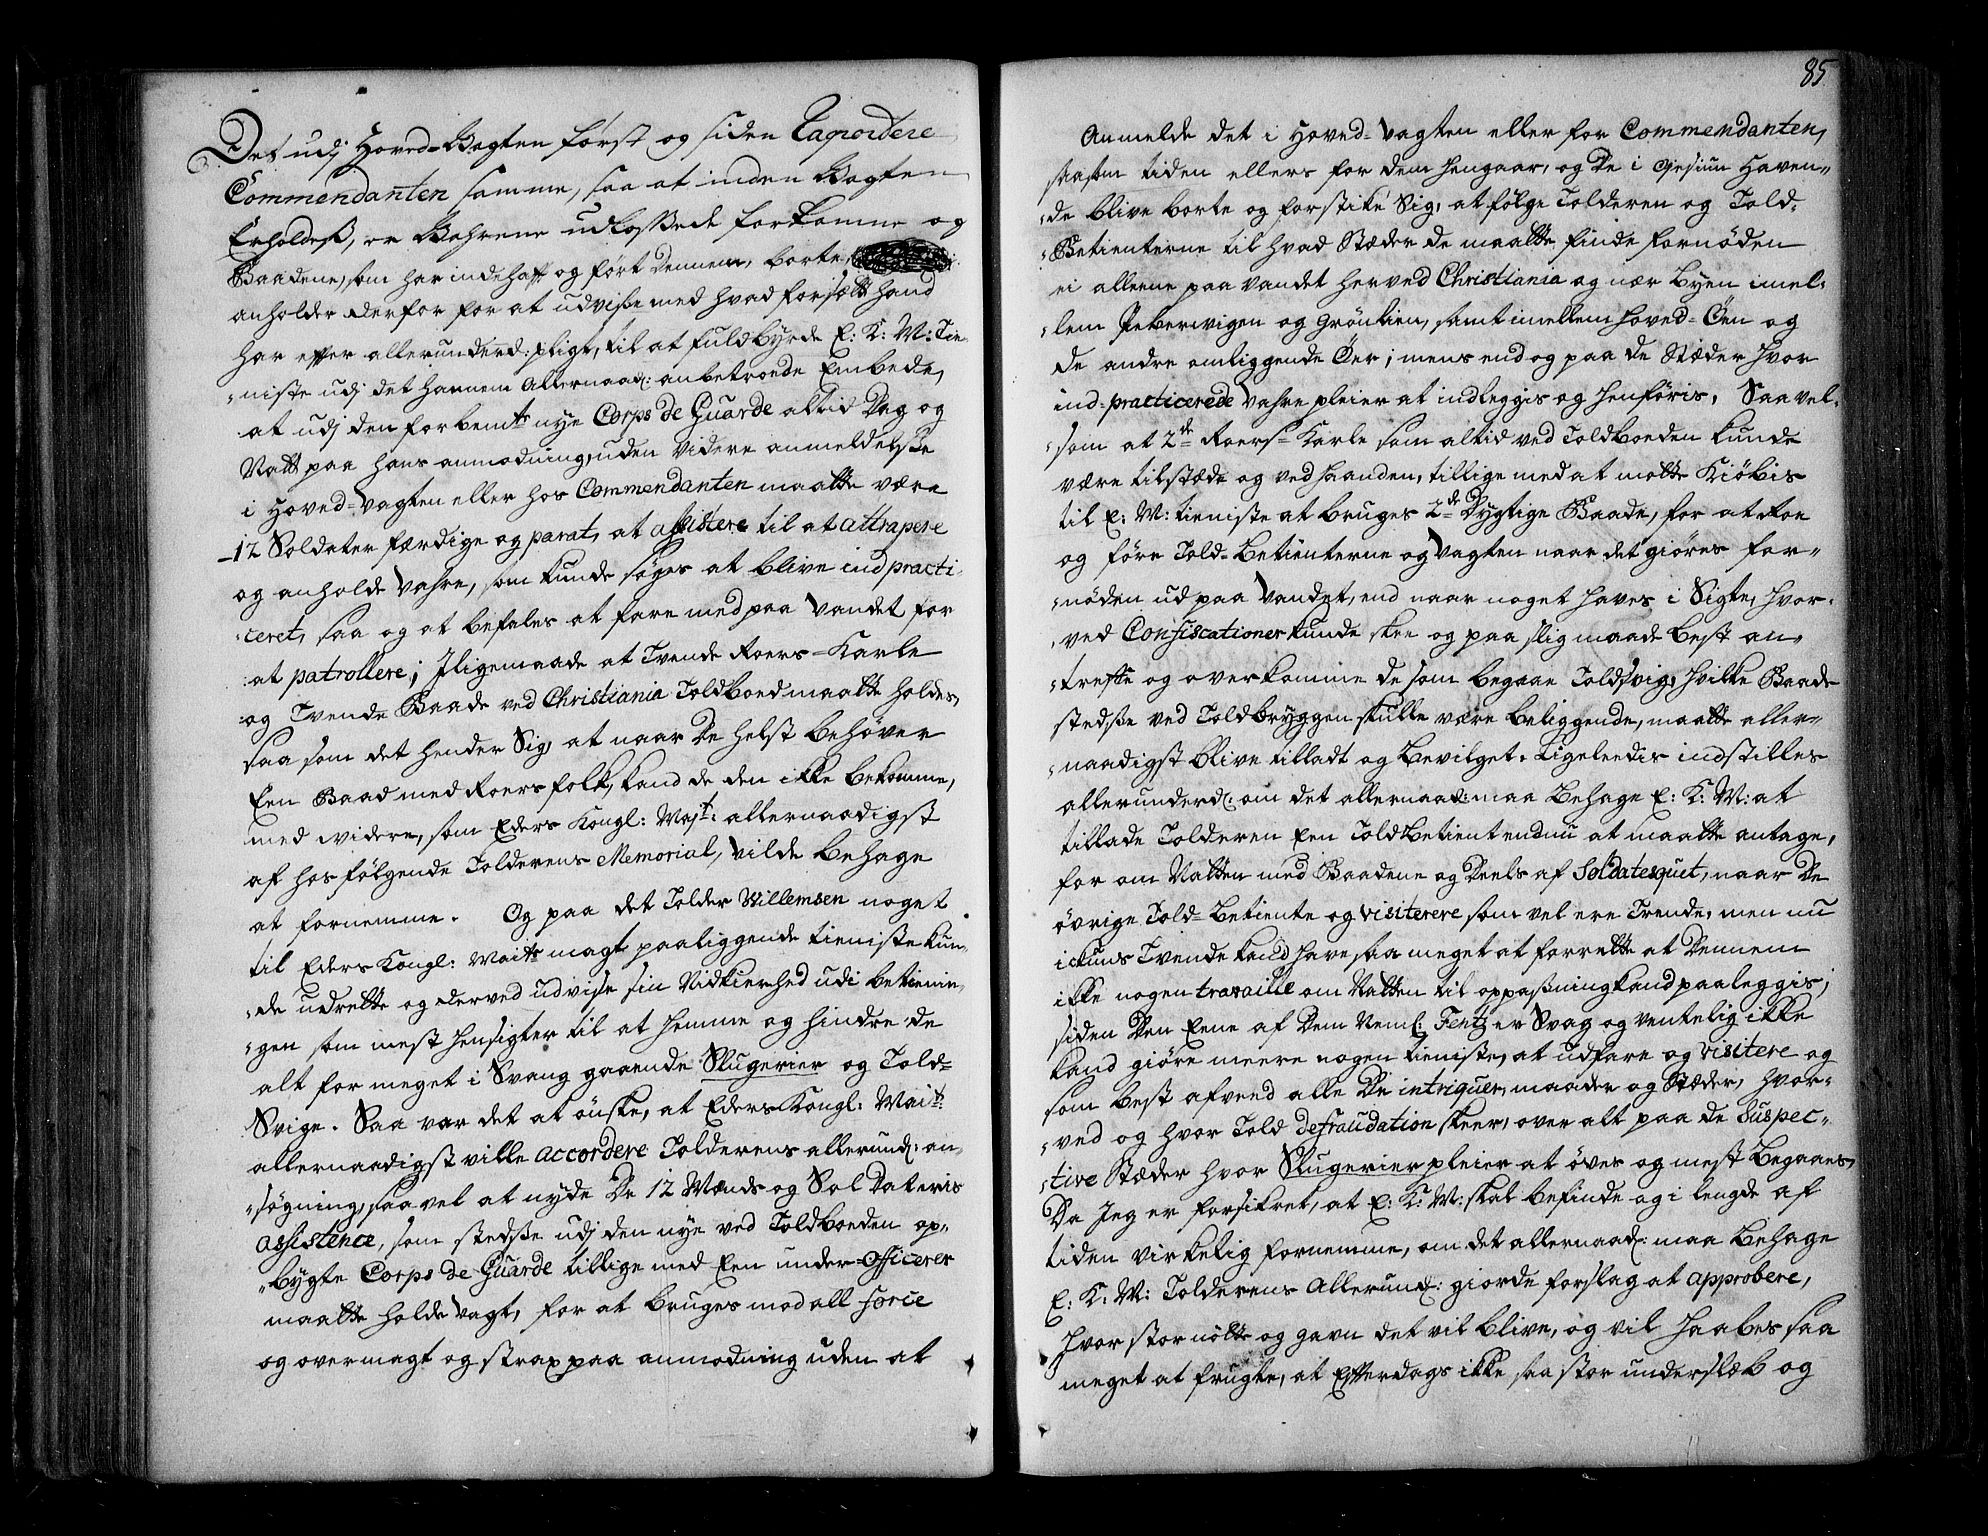 Det udj Hoved-Vagten først og siden Raportere
Commendanten samme, saa at inden Vagten
Erholdeß, er Vahrene udlossede forkomne og
Baadene, som har indehafft og ført Dennem, borte
anholder derfor for at udviße med hvad forsætt hand
har effter allerunderd: pligt, til at fuldbyrde E: K: M: Tie-
niste udj det hannem Allernaad: anbetroede Embede,
at udj den forbemte nye Corps de Guarde altid Dag og
Natt paa hans anmodning, uden videre anmeldelße
i Hoved-Vagten eller hos Commendanten maatte være
12 Soldater færdige og parat, at assistere til at attrapere
og anholde Vahre, som kunde søges at blive indpracti-
ceret, saa og at befales at fare med paa Vandet for
at patrollere; Iligemaade at Tvende Roers-Karle
og Tvende Baade ved Christiania Toldboed maatte holdes,
saasom det hender Sig, at naar De helst behøver
Een Baad med Roersfolk, kand de den ikke bekomme,
med widere, som Eders Kongl: Majt: allernaadigst
af hosfølgende Tolderens Memorial, Vilde behage
at fornemme. Og paa det Tolder Willemsen noget
til Eders Kongl: Maits magt paaliggende tieniste kun-
de udrette og derved udvise sin Nidkierhed udi betienin-
gen som mest hensigter til at hemme og hindre de
alt for meget i Svang gaaende Slugerier og Told-
Svige. Saa var det at ønske, at Eders Kongl: Mait:
allernaadigst ville accordere Tolderens allerund: an-
søgning, saavel at nyde De 12 Mænds og Soldateris
assistence, som stedße udj den nye ved Toldboeden op-
bygte Corps de Guarde tillige med Een under-Officerer
maatte holde Vagt, for at bruges mod all force
og overmagt og strax paa anmodning uden at
85
Anmelde det i Hoved-Vagten eller for Commendanten,
saasom tiden ellers for dem hengaar, og De i Giesium Haven-
de blive borte og forstike Sig, at følge Tolderen og Told-
Betienterne til hvad Stæder de maatte finde fornøden
ei alleene paa Vandet herved Christiania og nær Byen imel-
lem Peberwigen og Grønlien, samt imellem Hoved-Øen og
de andre omliggende Øer; mens end og paa de Stæder hvor
ind-practicerede Vahre pleier at indleggis og henføris, Saavel-
som at 2de Roers-Karle som altid ved Toldboeden kunde
være tilstæde og ved Haanden, tillige med at motte Kiøbis
til E: M: tieniste at bruges 2de Dygtige Baade, for at Roe
og føre Told-Betienterne og Vagten naar det giøres for-
nøden ud paa Vandet, end naar noget haves i Sigte, hvor-
ved Confiscationer kunde skee og paa slig maade best an-
treffe og overkomme de som begaae Toldsvig, hvilke Baade
stedße ved Toldbryggen skulle være beliggende, maatte aller-
naadigst blive tilladt og bevilget. Ligeleedis indstilles
allerunderd: om det allernaad: maa behage E: K: M: at
tillade Tolderen Een Toldbetient endnu at maatte antage,
for om Natten med Baadene og Deels af Soldatesquet, naar De
øvrige Told-Betiente og visiterere som vel ere Trende, men nu
ickuns Tvende kand have saa meget at forrette at Dennem
ikke nogen travaille om Natten til oppaßning kand paaleggis;
siden Den Eene af Dem Neml: Fentz er Svag og Ventelig ikke
kand giøre meere nogen tieniste, at udfare og visitere og
som best afvend alle De intriquer, maader og Stæder, hvor-
ved og hvor Told defraudation skeer, over alt paa de suspec-
tive Stæder hvor Slugerier pleier at øves og mest begaaes,
Da Jeg er forsikret, at E: K: M: skal befinde og i lengde af
tiden virkelig fornemme, om det allernaad: maa behage
E: K: M: Tolderens Allerund: giorde forslag at approbere,
Hvor stor nøtte og gavn det vil blive, og vil haabes saa
meget at frugte, at Effterdags ikke saa stor underslæb og